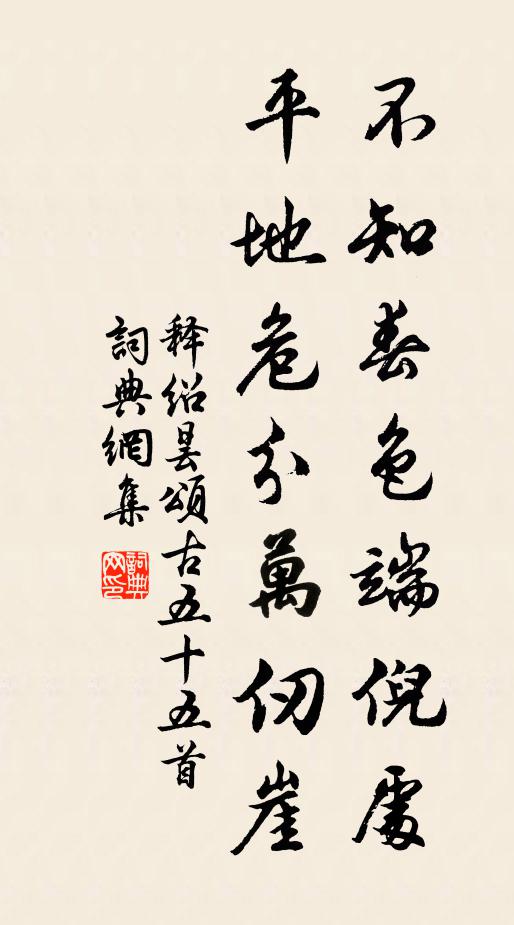 不知春色端倪處
平地危分萬仞崖
释绍昙頌古五十五首
詞典網集
詞典网印